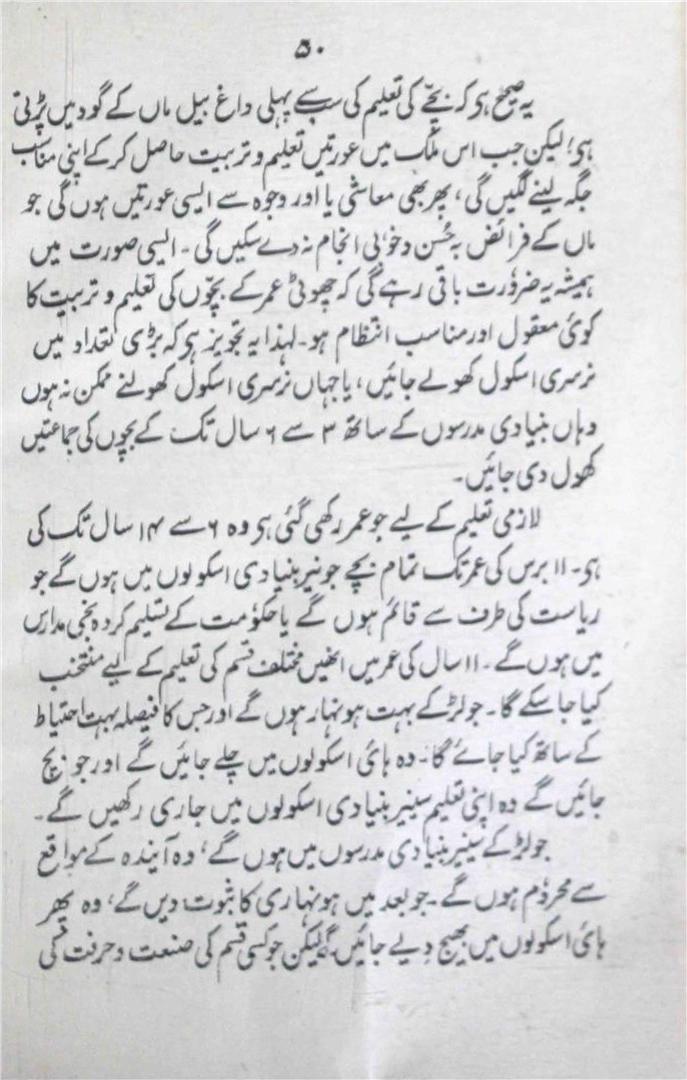 ۵۰
یہ صحیح ہو کہ بچّے کی تعلیم کی سب سے پہلی داغ بیل ماں کے گود میں پڑتی
ہو؛ لیکن جب اس ملک میں عورتیں تعلیم و تربیت حاصل کر کے اپنی مناسب
جگہ لینے لگیں گی، پھر بھی معاشی یا اور وجوہ سے ایسی عورتیں ہوں گی جو
ماں کے فرائض بہ حُسن و خوبی انجام نہ دے سکیں گی۔ ایسی صورت میں
ہمیشہ یہ ضرورت باقی رہے گی کہ چھوٹی عمر کے بچّوں کی تعلیم و تربیت کا
کوئی معقول اور مناسب انتظام ہو۔ لہذا یہ تجویز ہو کہ بڑی تعداد میں
نرسری اسکول کھولے جائیں، یا جہاں نرسری اسکول کھولنے ممکن نہ ہوں
وہاں بنیادی مدرسوں کے ساتھ ۳ سے ۶ سال تک کے بچوں کی جماعتیں
کھول دی جائیں۔
لازمی تعلیم کے لیے جو عمر رکھی گئی ہو وہ ۶ سے ۱۴ سال تک کی
ہو۔ ۱۱ برس کی عمر تک تمام بچے جونیر بنیادی اسکولوں میں ہوں گے جو
ریاست کی طرف سے قائم ہوں گے یا حکومت کے تسلیم کردہ نجی مدارس
میں ہوں گے۔ ۱۱ سال کی عمر میں انھیں مختلف قسم کی تعلیم کے لیے منتخب
کیا جا سکے گا۔ جو لڑکے بہت ہونہار ہوں گے اور جس کا فیصلہ بہت احتیاط
کے ساتھ کیا جائے گا۔ وہ ہائی اسکولوں میں چلے جائیں گے اور جو بچ
جائیں گے وہ اپنی تعلیم سینیر بنیادی اسکولوں میں جاری رکھیں گے۔
جو لڑکے سینیر بنیادی مدرسوں میں ہوں گے، وہ آیندہ کے مواقع
سے محروم ہوں گے۔ جو بعد میں ہونہاری کا ثبوت دیں گے، وہ پھر
ہائی اسکولوں میں بھیج دیے جائیں گے لیکن جو کسی قسم کی صنعت و حرفت کی